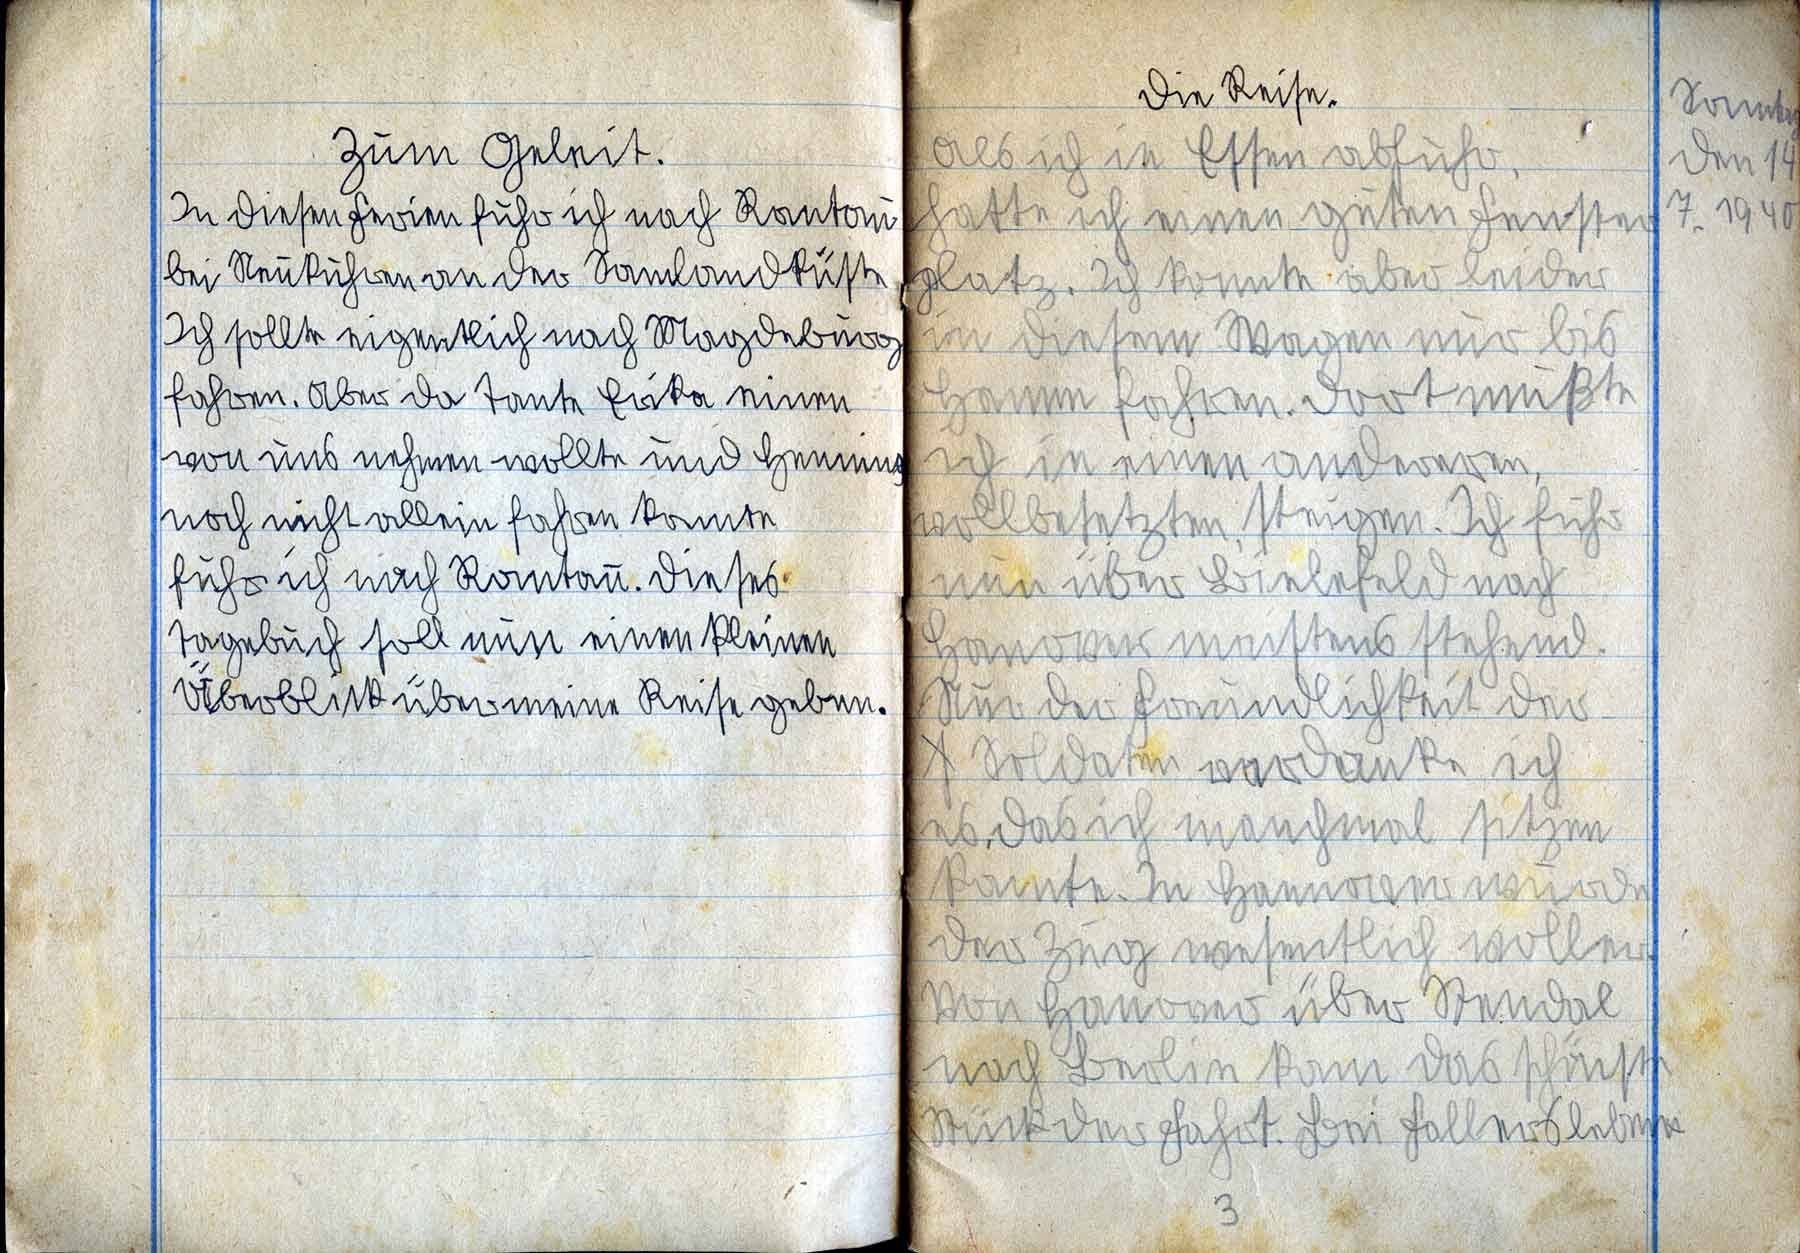 Zum Geleit.
In diesen Ferien fuhr ich nach Rantau
bei Neukuhren an der Samlandküste.
Ich sollte eigentlich nach Magdeburg
fahren. Aber da Tante Erika einen
von uns nehmen wollte und Henning
noch nicht allein fahren konnte
fuhr ich nach Rantau. Dieses
Tagebuch soll nun einen kleinen
Überblick über meine Reise geben.
Die Reise.
Sonntag
den 14
7. 1940
Als ich in Essen abfuhr,
hatte ich einen guten Fenster
platz. Ich konnte aber leider
in diesem Wagen nur bis
Hamm fahren. Dort mußte
ich in einen andereren,
vollbesetzten, steigen. Ich fuhr
nun über Bielefeld nach
Hanover meistens stehend.
Nur der Freundlichkeit der
Soldaten verdanke ich
es, das ich manchmal sitzen
konnte. In Hannover wurde
der Zug wesentlich voller.
Von Hanover über Stendal
nach Berlin kam das schönste
Stück der Fahrt. Bei Fallersleben
3